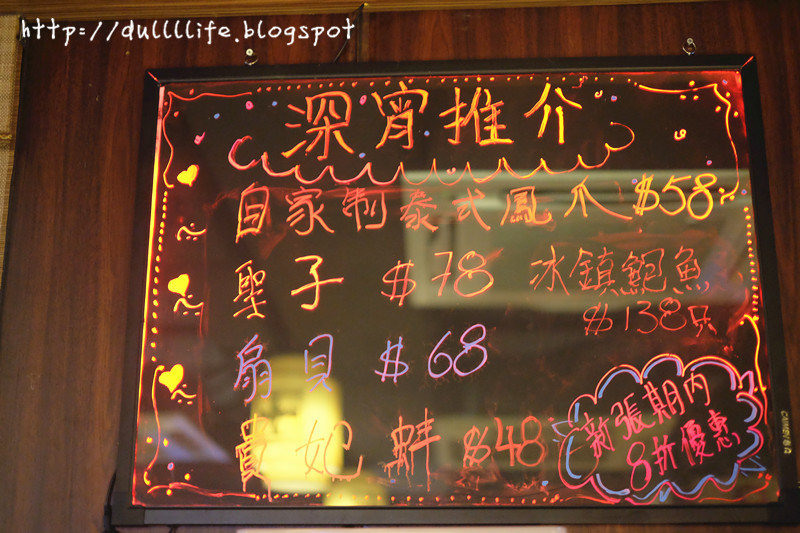 http://dullllife.blogspot
深宵推介
自家制泰式鳳爪 $58
聖子 $78 冰鎮鮑魚
$138只
扇貝 $68
貴妃蚌 $48
新張期內
8折優惠